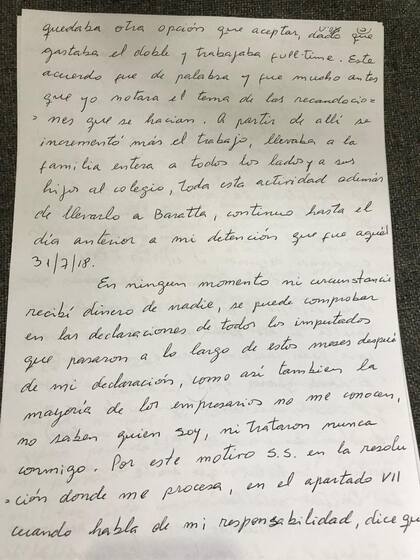 quedaba otra opción que aceptar, dado que
gastaba el doble y trabajaba full-time. Este
acuerdo fue de palabra y fue mucho antes
que yo notara el tema de las recaudacio-
=nes que se hacian. A partir de allí se
incrementó más el trabajo, llevaba a la
familia entera a todos los lados y a sus
hijos al colegio, toda esta actividad además
de llevarlo a Baratta, continuo hasta el
día anterior a mi detención que fue aquél
31/7/18.
En ningun momento ni circunstancia
recibí dinero de nadie, se puede comprobar
en las declaraciones de todos los imputados
que pasaron a lo largo de estos meses después
de mi declaración, como así tambien la
mayoría de los empresarios no me conocen,
no saben quien soy, ni trataron nunca
conmigo. Por este motivo S.S. en la resolu
=ción donde me procesa, en el apartado VII
cuando habla de mi responsabilidad, dice que